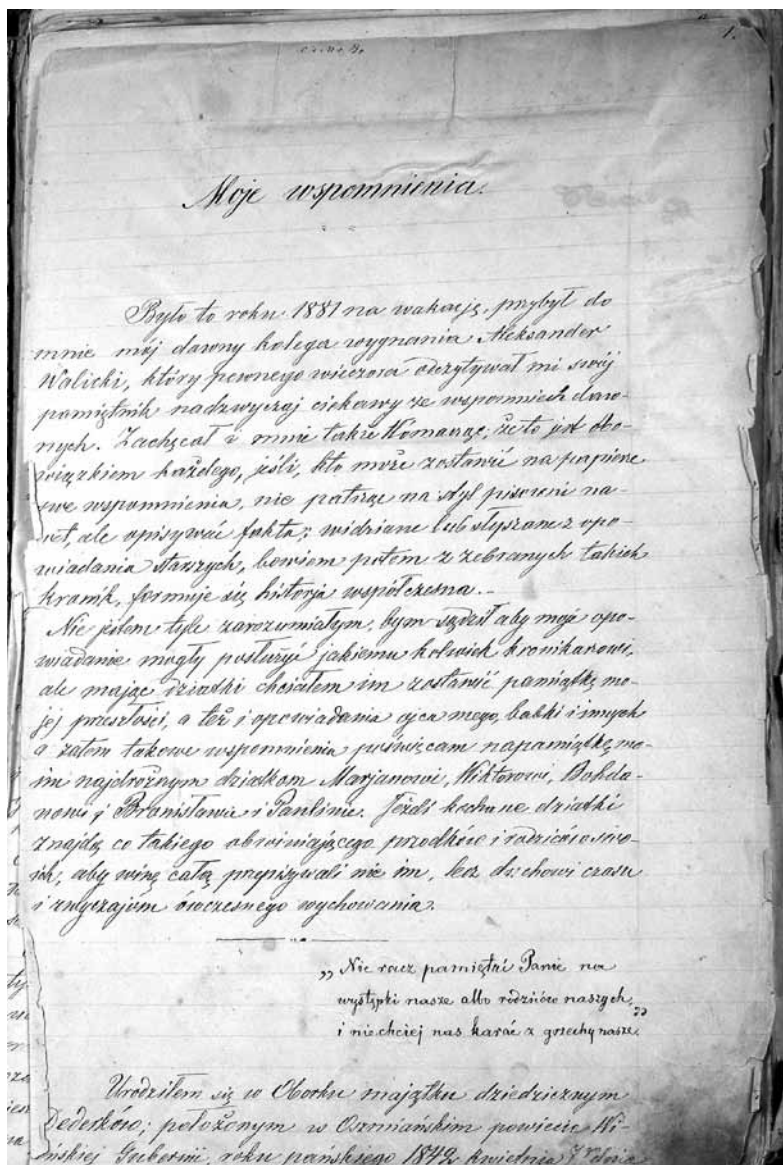 1.
Moje wspomnienia.
Było to roku 1881 na wakacje, przybył do
mnie mój dawny kolega wygnania Aleksander
Walicki, który pewnego wieczora odczytywał mi swój
pamiętnik nadzwyczaj ciekawy ze wspomnień daw-
nych. Zachęcał i mnie także tłomacząc, że to jest obo-
wiązkiem każdego, jeśli, kto może zostawić na papierze
swe wspomnienia, nie patrząc na styl pisowni na-
wet, ale opisywać fakta; widziane lub słyszane z opo-
wiadania starszych, bowiem potem z zebranych takich
kronik, formuje się historja współczesna.-
Nie jestem tyle zarozumiałym, bym sądził aby moje opo-
wiadanie mogły posłużyć jakiemu kolwiek kronikarowi,
ale mając dziatki chciałem im zostawić pamiątkę mo-
jej przeszłości, a też i opowiadania ojca mego, babki i innych
a zatem takowe wspomnienia poświęcam na pamiątkę mo-
im najdroższym dziatkom Marjanowi, Wiktorowi, Bohda-
nowi i Bronisławie i Paulinie. Jeżeli kochane dziatki
znajdą co takiego obwiniającego przodków i rodziców swo-
ich, aby winę całą przypisywali nie im, lecz duchowi czasu
i zwyczajom ówczesnego wychowania.
„Nie racz pamiętać Panie na
występki nasze albo rodziców naszych,
i nie chciej nas karać z grzechy nasze."
Urodziłem się w Oborku majątku dziedzicznym
Dederków; położonym w Oszmiańskim powiecie Wi-
leńskiej Gubernii, roku pańskiego 1842 kwietnia 7